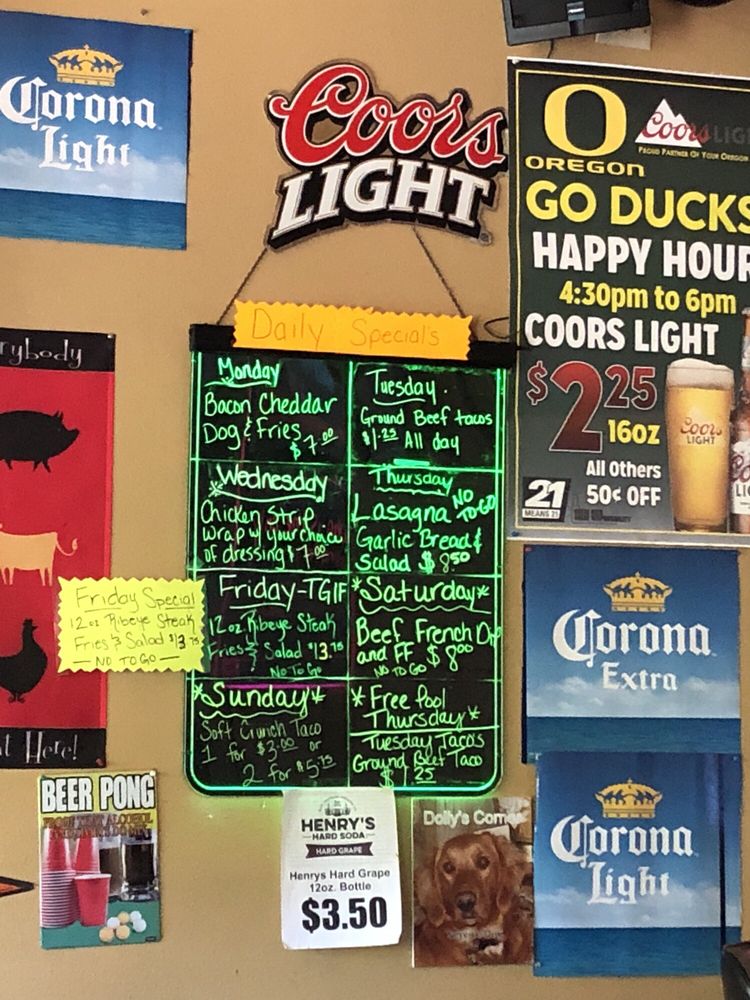 Corona
Light
Coors
LIGHT
O
OREGON
Coors LIG
PROUD PARTNER OF YOUR OREGON
GO DUCKS
HAPPY HOUR
4:30pm to 6pm
COORS LIGHT
$2.25
16oz
All Others
50¢ OFF
21
MEANS 21
Coors
LIGHT
Daily Special's
Monday
Bacon Cheddar
Dog & Fries
$7.00
Tuesday.
Ground Beef tacos
$1.25 All day
*Wednesday
Chicken Strip
wrap w/ your choice
of dressing $7.00
Thursday
Lasagna NO TO GO
Garlic Bread &
Salad $8.50
Friday-TGIF
12oz Ribeye Steak
Fries & Salad $13.75
NO To Go
*Saturday*
Beef French Dip
and FF $8.00
NO TO GO
*Sunday*
Soft Crunch Taco
1 for $3.00 or
2 for $5.75
*Free Pool
Thursday*
Tuesday Taco's
Ground Beef Taco
$1.25
rybody
t Here!
Friday Special
12oz Ribeye Steak
Fries & Salad $13.75
— NO TO GO —
Corona
Extra
Corona
Light
BEER PONG
HENRY'S
HARD SODA
HARD GRAPE
Henrys Hard Grape
12oz. Bottle
$3.50
Dolly's Corner